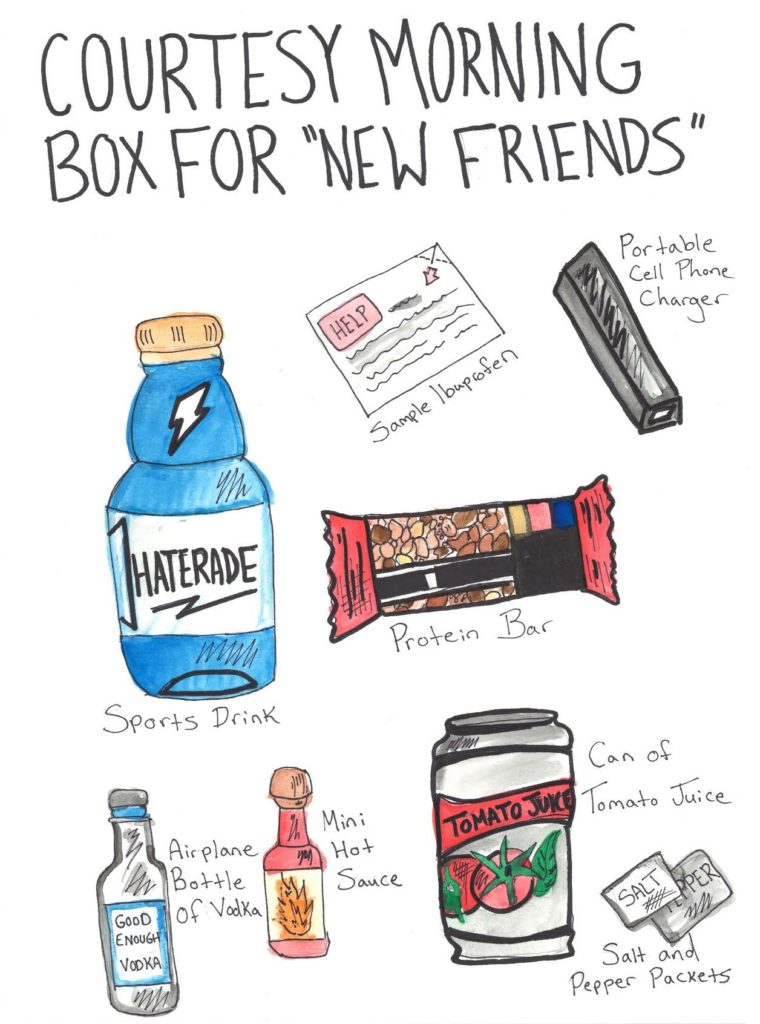 COURTESY MORNING
BOX FOR "NEW FRIENDS"
Portable
Cell Phone
Charger
HELP
Sample Ibuprofen
HATERADE
Sports Drink
Protein Bar
Can of
Tomato Juice
TOMATO JUICE
Airplane
Bottle
of Vodka
GOOD
ENOUGH
VODKA
Mini
Hot
Sauce
SALT
PEPPER
Salt and
Pepper Packets